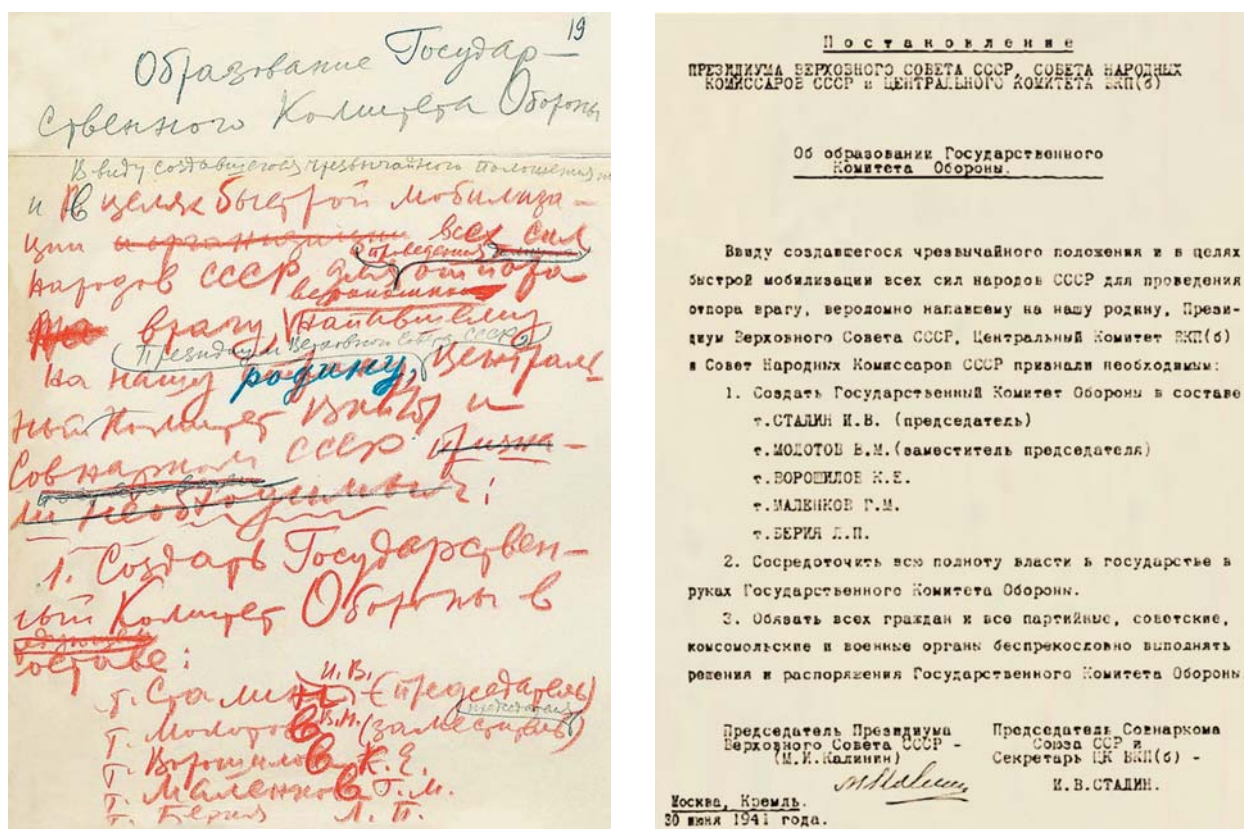 19
Образование Государ-
ственного Комитета Обороны
В виду создавшегося чрезвычайного положения
и В целях быстрой мобилиза-
ции всех сил
проведения
народов СССР для отпора
вероломно
врагу, напавшему
Президиум Верховного Совета СССР,
на нашу родину, Централь-
ный Комитет ВКП(б) и
Совнарком СССР призна-
ли необходимым:
1. Создать Государствен-
ный Комитет Обороны в
составе:
т. Сталин И.В. (председатель)
т. Молотов В.М. (заместитель председателя)
т. Ворошилов К.Е.
т. Маленков Г.М.
т. Берия Л.П.
Постановление
ПРЕЗИДИУМА ВЕРХОВНОГО СОВЕТА СССР, СОВЕТА НАРОДНЫХ
КОМИССАРОВ СССР и ЦЕНТРАЛЬНОГО КОМИТЕТА ВКП(б)
Об образовании Государственного
Комитета Обороны.
Ввиду создавшегося чрезвычайного положения и в целях
быстрой мобилизации всех сил народов СССР для проведения
отпора врагу, вероломно напавшему на нашу родину, Прези-
диум Верховного Совета СССР, Центральный Комитет ВКП(б)
и Совет Народных Комиссаров СССР признали необходимым:
1. Создать Государственный Комитет Обороны в составе
т.СТАЛИН И.В. (председатель)
т.МОЛОТОВ В.М.(заместитель председателя)
т.ВОРОШИЛОВ К.Е.
т.МАЛЕНКОВ Г.М.
т.БЕРИЯ Л.П.
2. Сосредоточить всю полноту власти в государстве в
руках Государственного Комитета Обороны.
3. Обязать всех граждан и все партийные, советские,
комсомольские и военные органы беспрекословно выполнять
решения и распоряжения Государственного Комитета Обороны
Председатель Президиума
Верховного Совета СССР -
(М.И.Калинин)
Председатель Совнаркома
Союза ССР и
Секретарь ЦК ВКП(б) -
И.В.СТАЛИН.
Москва, Кремль.
30 июня 1941 года.